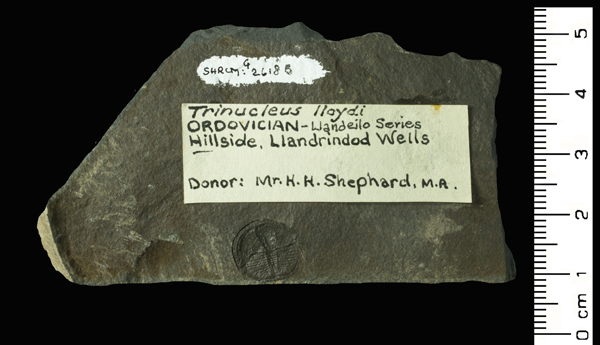 SHRCM: G 2618
Trinucleus lloydi
ORDOVICIAN - Llandeilo Series
Hillside, Llandrindod Wells
Donor: Mr. H. H. Shephard, M.A.
5
4
3
2
1
0 cm